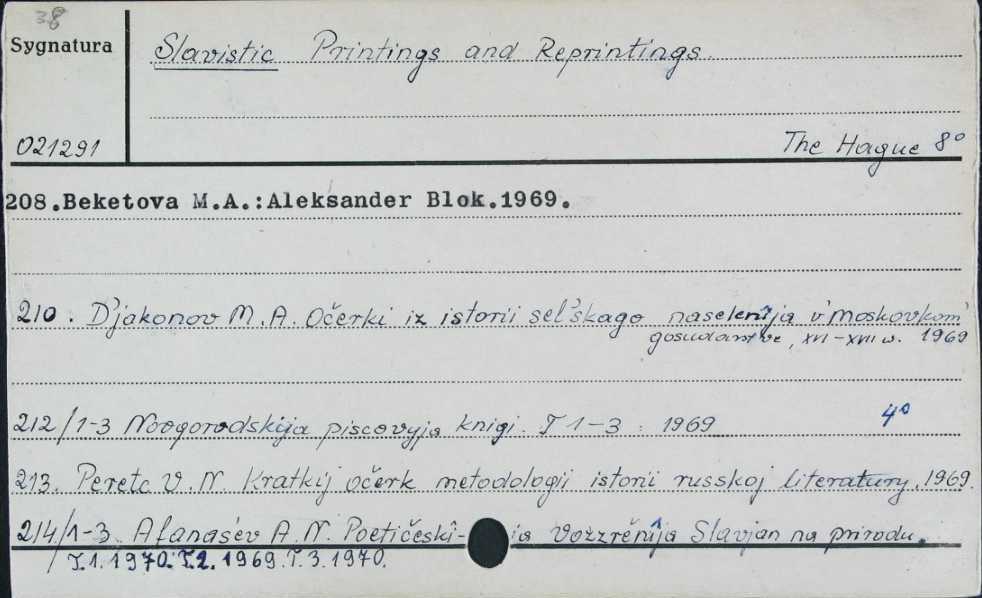 38
Sygnatura
Slavistic Printings and Reprintings.
021291
The Hague 8°
208.Beketova M.A.:Aleksander Blok.1969.
210. D'jakonov M.A. Očerki iz istorii sel'skago naselenîja v' moskovkom'
gosudarstve, XVI-XVII w. 1969
212/1-3 Novgorodskija piscovyja knigi. T 1-3. 1969 4°
213. Peretc V.N. Kratkij očerk metodologii istorii russkoj literatury. 1969.
214/1-3. Afanas'ev A.N. Poetičeskî- ja vozzrěnîja Slavjan na prirodu.
T.1.1970.T.2.1969.T.3.1970.